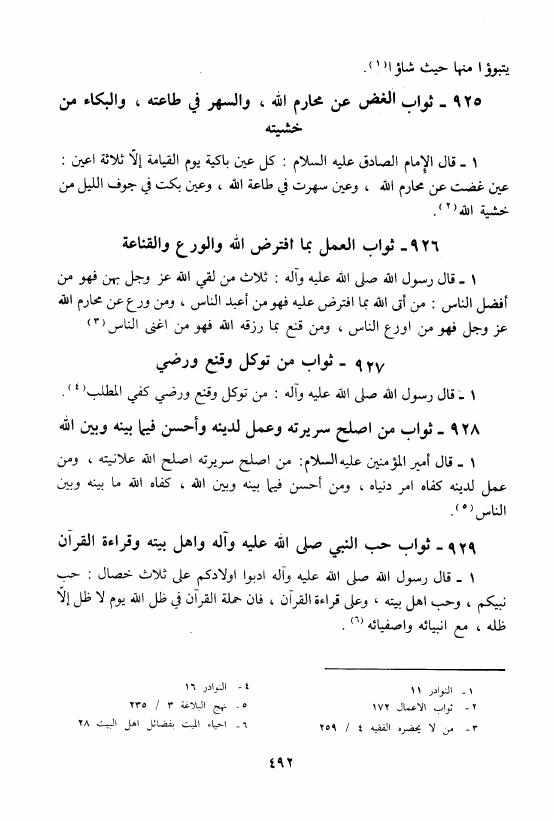 يتبوؤا منها حيث شاؤا(١).
٩٢٥ ـ ثواب الغض عن محارم الله ، والسهر في طاعته ، والبكاء من
خشيته
١ ـ قال الإمام الصادق عليه السلام : كل عين باكية يوم القيامة إلّا ثلاثة اعين :
عين غضت عن محارم الله ، وعين سهرت في طاعة الله ، وعين بكت في جوف الليل من
خشية الله(٢).
٩٢٦ ـ ثواب العمل بما افترض الله والورع والقناعة
١ ـ قال رسول الله صلى الله عليه وآله : ثلاث من لقي الله عز وجل بهن فهو من
أفضل الناس : من أتى الله بما افترض عليه فهو من أعبد الناس ، ومن ورع عن محارم الله
عز وجل فهو من اورع الناس ، ومن قنع بما رزقه الله فهو من اغنى الناس(٣)
٩٢٧ ـ ثواب من توكل وقنع ورضي
١ ـ قال رسول الله صلى الله عليه وآله : من توكل وقنع ورضي كفي المطلب(٤).
٩٢٨ ـ ثواب من اصلح سريرته وعمل لدينه وأحسن فيما بينه وبين الله
١ ـ قال أمير المؤمنين عليه السلام: من اصلح سريرته اصلح الله علانيته ، ومن
عمل لدينه كفاه امر دنياه ، ومن أحسن فيما بينه وبين الله ، كفاه الله ما بينه وبين
الناس(٥).
٩٢٩ ـ ثواب حب النبي صلى الله عليه وآله واهل بيته وقراءة القرآن
١ ـ قال رسول الله صلى الله عليه وآله ادبوا اولادكم على ثلاث خصال : حب
نبيكم ، وحب اهل بيته ، وعلى قراءة القرآن ، فان حملة القرآن في ظل الله يوم لا ظل إلّا
ظله ، مع انبيائه واصفيائه(٦).
١ـ النوادر ١١
٢ـ ثواب الاعمال ١٧٢
٣ـ من لا يحضره الفقيه ٤ / ٢٥٩
٤ـ النوادر ١٦
٥ـ نهج البلاغة ٣ / ٢٣٥
٦ـ احياء الميت بفضائل اهل البيت ٢٨
٤٩٢